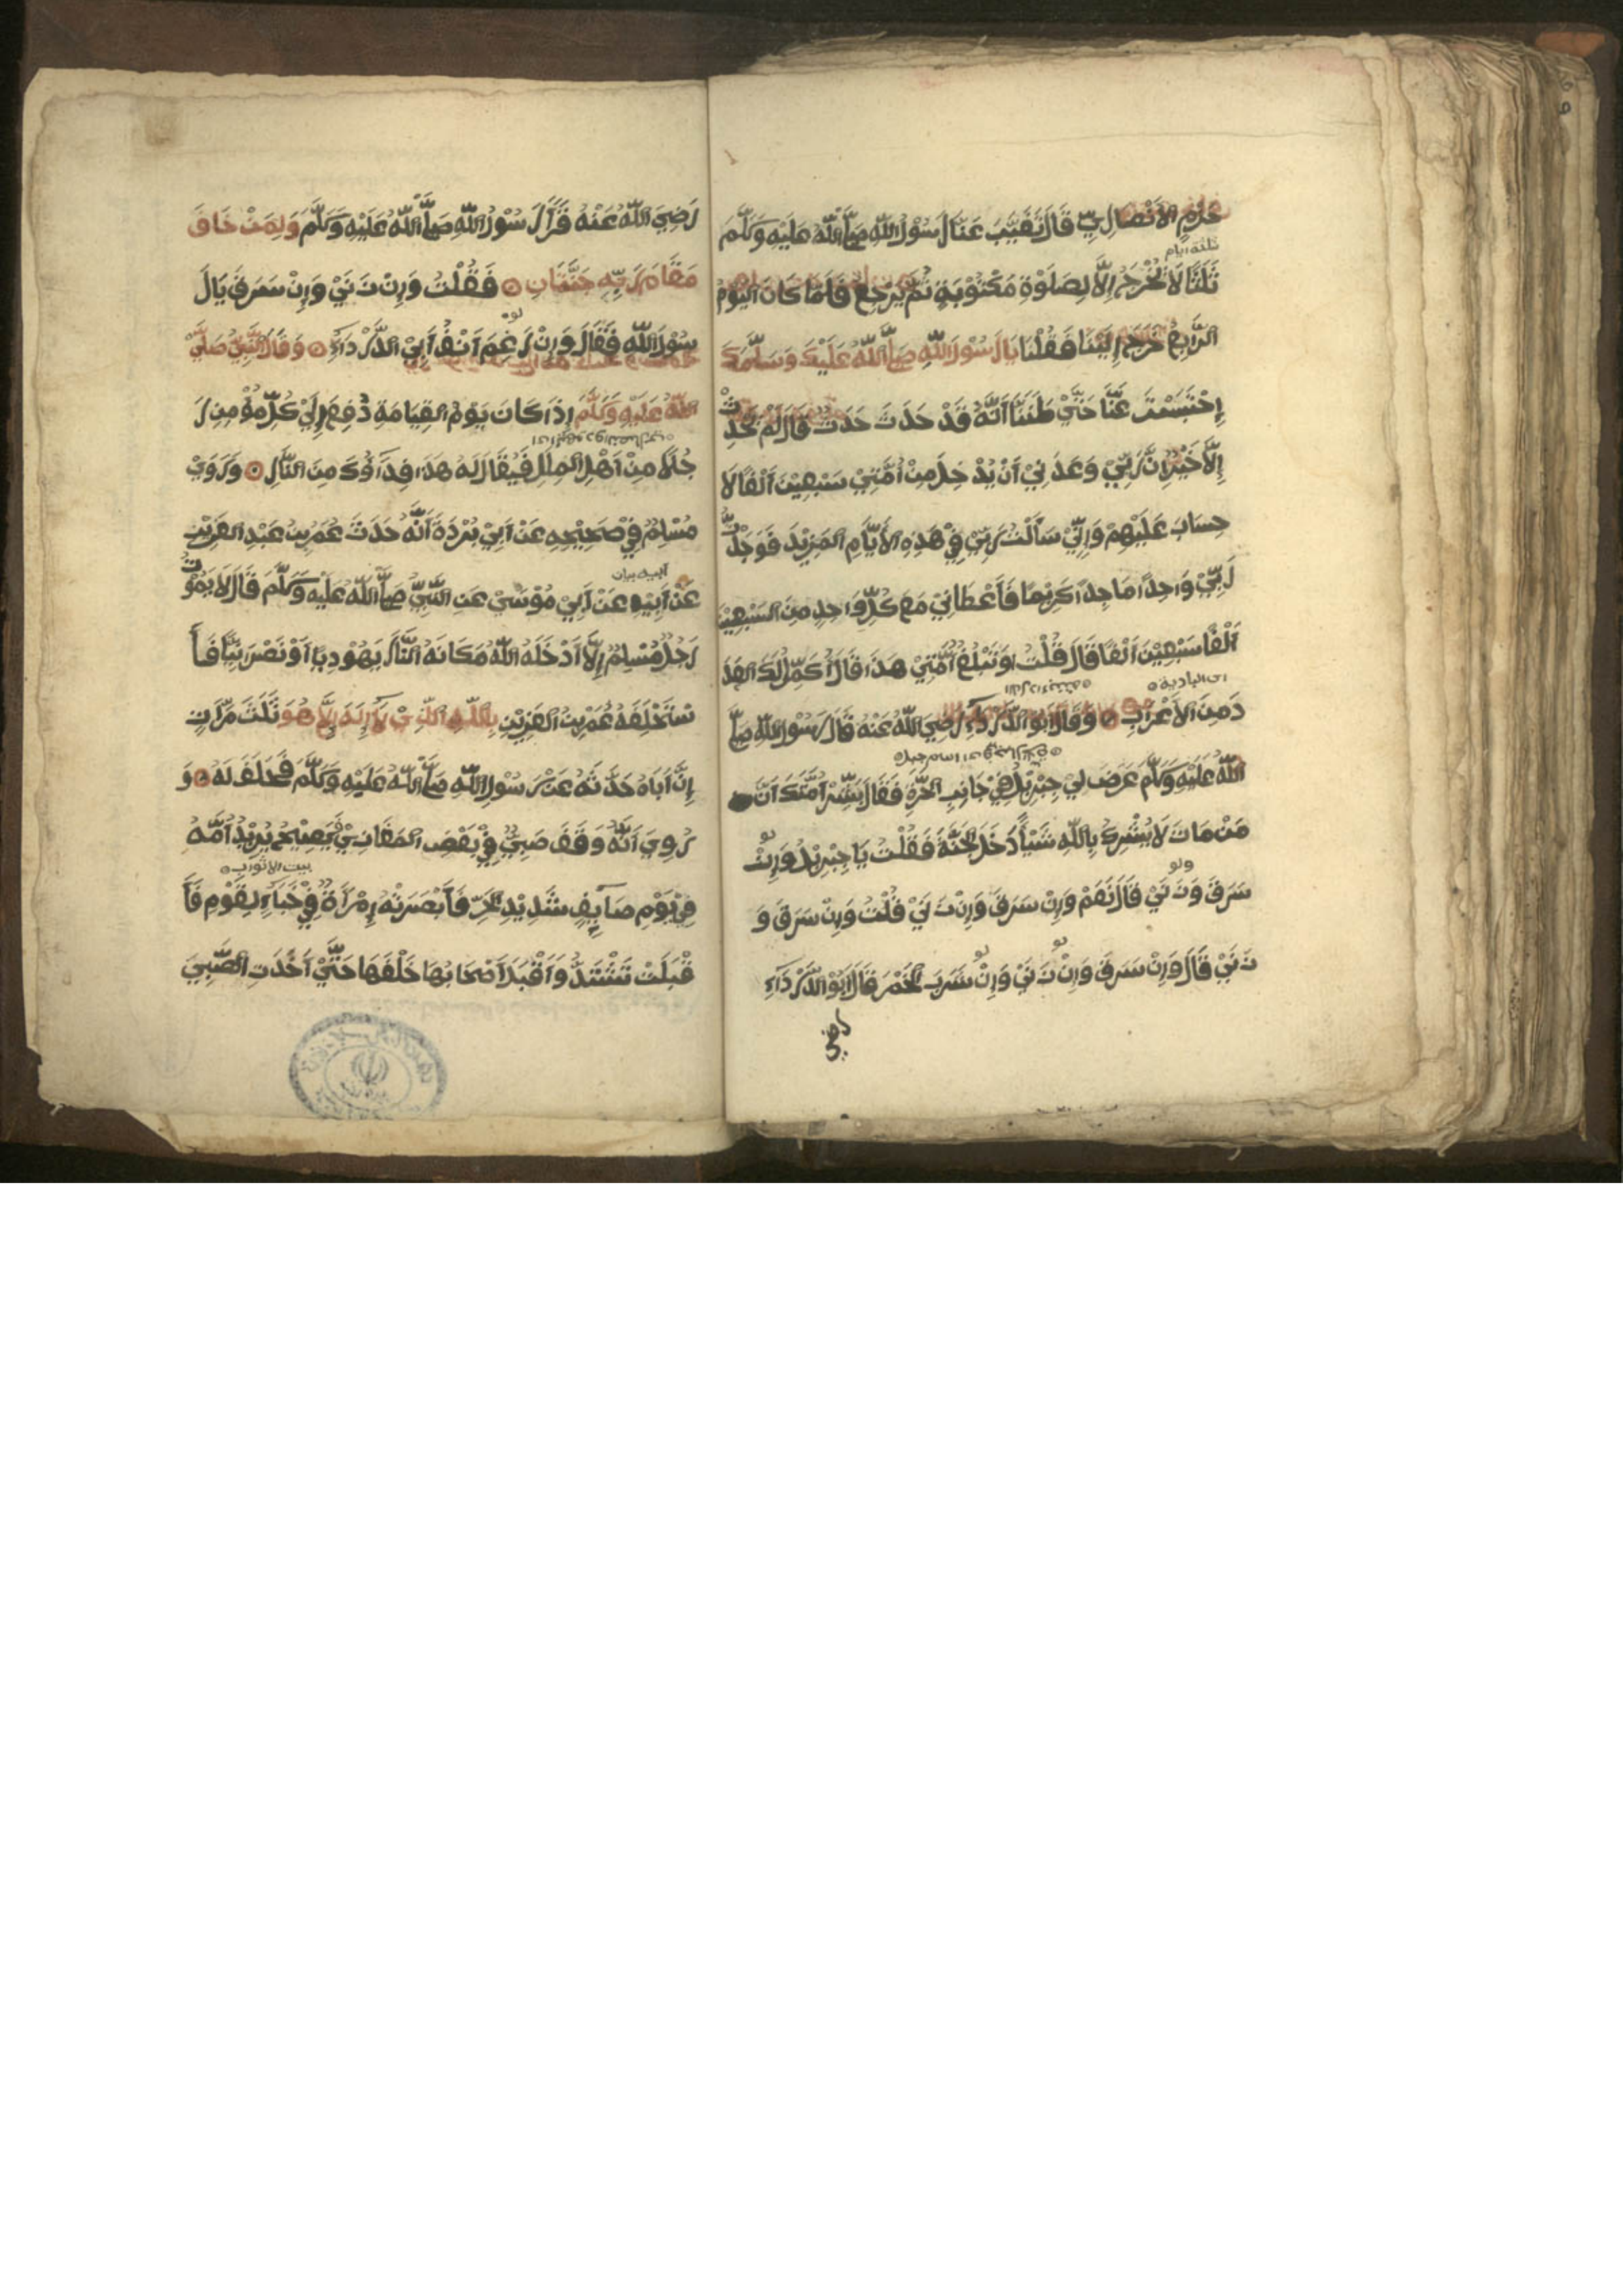 حَزْمٍ الأَنْصَارِيِّ قَالَ تَغَيَّبَ عَنَّا رَسُوْلُ اللّٰهِ صَلَّى اللّٰهُ عَلَيْهِ وَسَلَّمَ
ثلثة ايام
ثَلٰثًا لَا يَخْرُجُ إِلَّا لِصَلٰوةٍ مَكْتُوْبَةٍ ثُمَّ يَرْجِعُ فَلَمَّا كَانَ اليَوْمُ
الرَّابِعُ خَرَجَ إِلَيْنَا فَقُلْنَا يَا رَسُوْلَ اللّٰهِ صَلَّى اللّٰهُ عَلَيْكَ وَسَلَّمَكَ
إِحْتَبَسْتَ عَنَّا حَتَّيْ ظَنَنَّا أَنَّهُ قَدْ حَدَثَ حَدَثٌ قَالَ لَمْ يَحْدِثْ
إِلَّا خَيْرٌ إِنَّ رَبِّيْ وَعَدَنِيْ أَنْ يُدْخِلَ مِنْ أُمَّتِيْ سَبْعِيْنَ أَلْفًا لَا
حِسَابَ عَلَيْهِمْ وَإِنِّيْ سَأَلْتُ رَبِّيْ فِيْ هَذِهِ الأَيَّامِ المَزِيْدَ فَوَجَدْتُّ
رَبِّيْ وَاحِدًا مَاجِدًا كَرِيْمًا فَأَعْطَانِيْ مَعَ كُلِّ وَاحِدٍ مِنَ السَّبْعِيْنَ
أَلْفًا سَبْعِيْنَ أَلْفًا قَالَ قُلْتُ وَتَبْلُغُ أُمَّتِيْ هَذَا قَالَ أُكَمِّلُ لَكَ العَدَ
اى البادية
دَ مِنَ الأَعْرَابِ وَقَالَ أَبُو الدَّرْدَآءِ رَضِيَ اللّٰهُ عَنْهُ قَالَ رَسُوْلُ اللّٰهِ صَلَّى
اللّٰهُ عَلَيْهِ وَسَلَّمَ عَرَضَ لِيْ جِبْرِيْلُ فِيْ جَانِبِ الحَرَّةِ فَقَالَ بَشِّرْ أُمَّتَكَ أَنَّ
مَنْ مَاتَ لَا يُشْرِكُ بِاللّٰهِ شَيْأً دَخَلَ الجَنَّةَ فَقُلْتُ يَا جِبْرِيْلُ وَإِنْ
ولو
سَرَقَ وَزَنَيْ قَالَ نَعَمْ وَإِنْ سَرَقَ وَإِنْ زَنَيْ قُلْتُ وَإِنْ سَرَقَ وَ
لو لو
زَنَيْ قَالَ وَإِنْ سَرَقَ وَإِنْ زَنَيْ وَإِنْ شَرِبَ الخَمْرَ قَالَ أَبُو الدَّرْدَآءِ
رضي
رَضِيَ اللّٰهُ عَنْهُ قَرَأَ رَسُوْلُ اللّٰهِ صَلَّى اللّٰهُ عَلَيْهِ وَسَلَّمَ وَلِمَنْ خَافَ
مَقَامَ رَبِّهِ جَنَّتَانِ فَقُلْتُ وَإِنْ زَنَيْ وَإِنْ سَرَقَ يَا رَ
لو
سُوْلَ اللّٰهِ فَقَالَ وَإِنْ رَغِمَ أَنْفُ أَبِيْ الدَّرْدَآءِ وَقَالَ النَّبِيُّ صَلَّيْ
اللّٰهُ عَلَيْهِ وَسَلَّمَ إِذَا كَانَ يَوْمُ القِيَامَةِ دُفِعَ إِلَيْ كُلِّ مُؤْمِنٍ رَ
جُلًا مِنْ أَهْلِ المِلَلِ فَيُقَالُ لَهُ هَذَا فِدَاؤُكَ مِنَ النَّارِ وَرَوَيْ
مُسْلِمٌ فِيْ صَحِيْحِهِ عَنْ أَبِيْ بُرْدَةَ أَنَّهُ حَدَثَ عُمَرَ بْنَ عَبْدِ العَزِيْزِ
ابيه بيان
عَنْ أَبِيْهِ عَنْ أَبِيْ مُوْسَيْ عَنِ النَّبِيِّ صَلَّى اللّٰهُ عَلَيْهِ وَسَلَّمَ قَالَ لَا يَمُوْتُ
رَجُلٌ مُسْلِمٌ إِلَّا أَدْخَلَهُ اللّٰهُ مَكَانَهُ النَّارَ يَهُوْدِيًّا أَوْ نَصْرَنِيًّا فَأَ
سْتَحْلَفَهُ عُمَرُ بْنُ العَزِيْزِ بِاللّٰهِ الَّذِيْ لَآ إِلٰهَ إِلَّا هُوَ ثَلٰثَ مَرَّاتٍ
إِنَّ أَبَاهُ حَدَّثَهُ عَنْ رَسُوْلِ اللّٰهِ صَلَّى اللّٰهُ عَلَيْهِ وَسَلَّمَ فَحَلَفَ لَهُ وَ
رُوِيَ أَنَّهُ وَقَفَ صَبِيٌّ فِيْ بَعْضِ المَغَازِيْ يَصِيْحُ يُرِيْدُ أُمَّهُ
بيت الاثواب
فِيْ يَوْمٍ صَآيِفٍ شَدِيْدِ الحَرِّ فَأَبْصَرَتْهُ إِمْرَأَةٌ فِيْ خَبَآءٍ لِقَوْمٍ فَأَ
قْبَلَتْ تَشْتَدُّ وَأَقْبَلَ أَصْحَابُهَا خَلْفَهَا حَتَّيْ أَخَذَتِ الصَّبِيَ